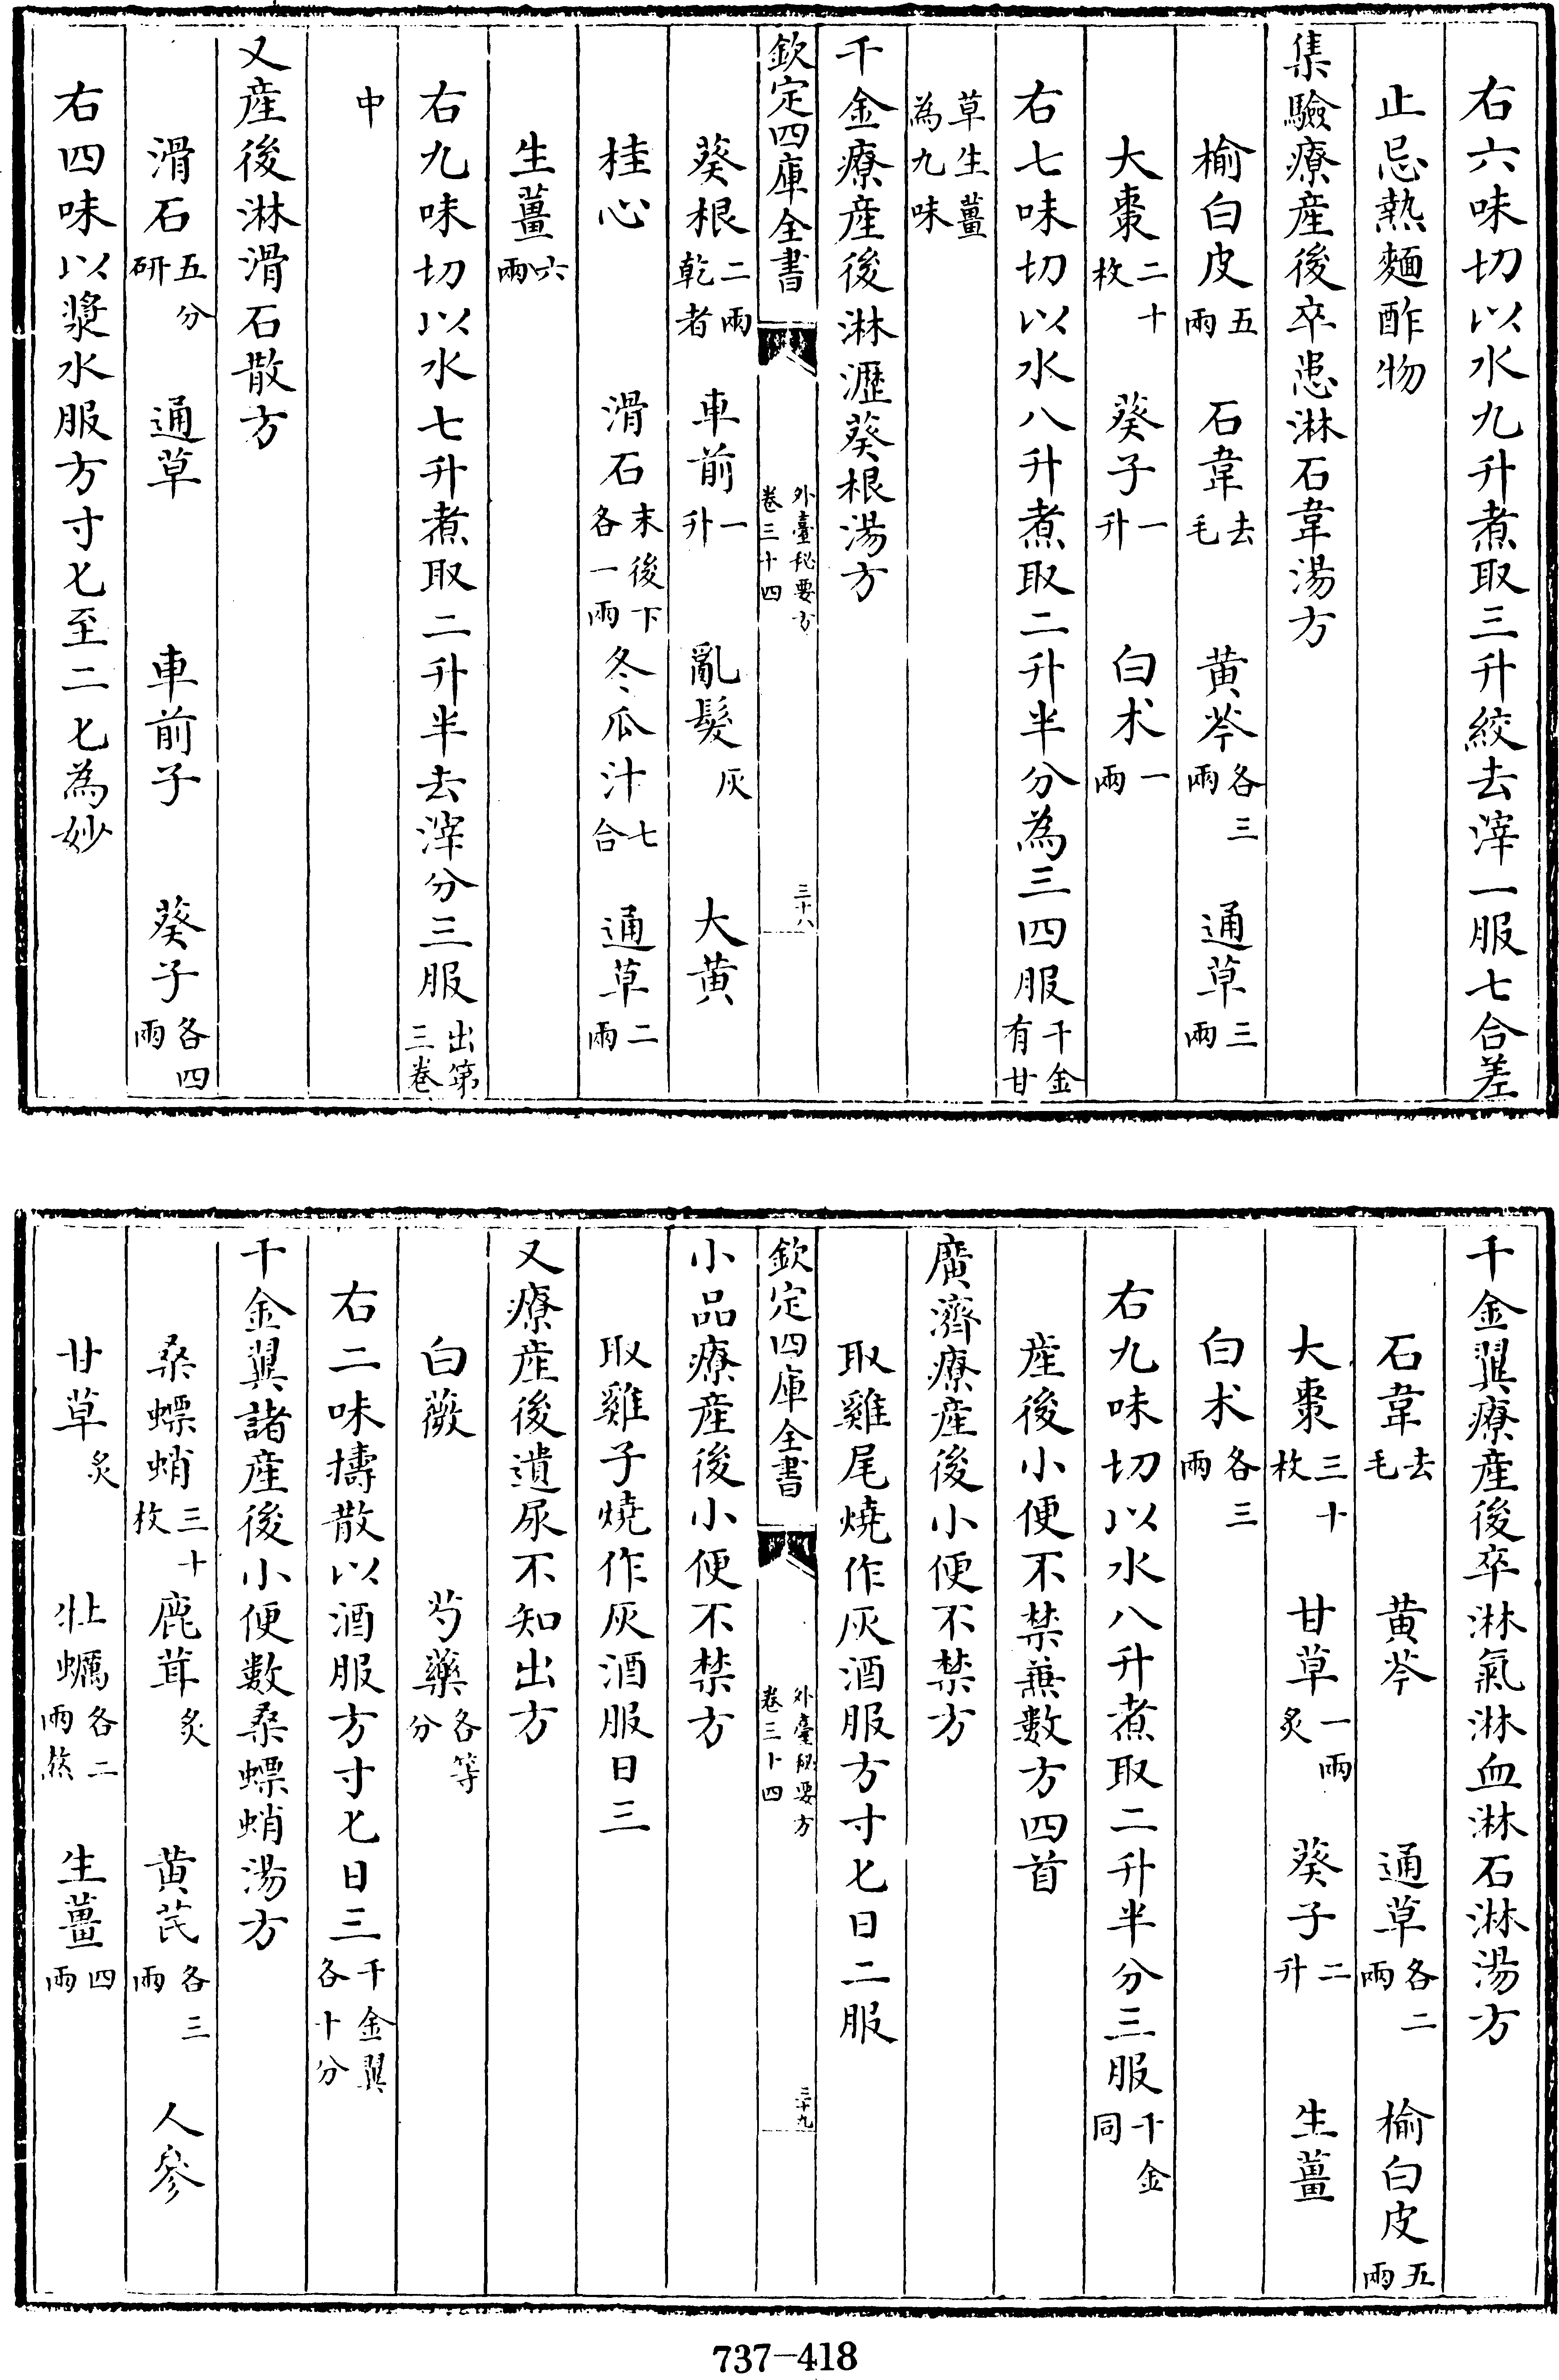 右六味切以水九升煮取三升絞去滓一服七合差
止忌熱麵酢物
集驗療産後卒患淋石韋湯方
榆白皮五兩 石韋去毛 黄芩各三兩 通草三兩
大棗二十枚 葵子一升 白术一兩
右七味切以水八升煮取二升半分為三四服千金有甘
草生薑為九味
千金療産後淋瀝葵根湯方
欽定四庫全書 外臺秘要方卷三十四 三十八
葵根二兩乾者 車前一升 亂髮灰 大黄
桂心 滑石末後下各一兩 冬瓜汁七合 通草二兩
生薑六兩
右九味切以水七升煮取二升半去滓分三服出第三卷
中
又産後淋滑石散方
滑石五分研 通草 車前子 葵子各四兩
右四味以漿水服方寸匕至二匕為妙
千金翼療産後卒淋氣淋血淋石淋湯方
石韋去毛 黄芩 通草各二兩 榆白皮五兩
大棗三十枚 甘草一兩炙 葵子二升 生薑
白术各三兩
右九味切以水八升煮取二升半分三服千金同
産後小便不禁兼數方四首
廣濟療産後小便不禁方
取雞尾燒作灰酒服方寸匕日二服
欽定四庫全書 外臺秘要方卷三十四 三十九
小品療産後小便不禁方
取雞子燒作灰酒服日三
又療産後遺尿不知出方
白薇 芍藥各等分
右二味擣散以酒服方寸匕日三千金翼各十分
千金翼諸産後小便數桑螵蛸湯方
桑螵蛸三十枚 鹿茸炙 黄芪各三兩 人參
甘草炙 牡蠣各二兩熬 生薑四兩
737-418